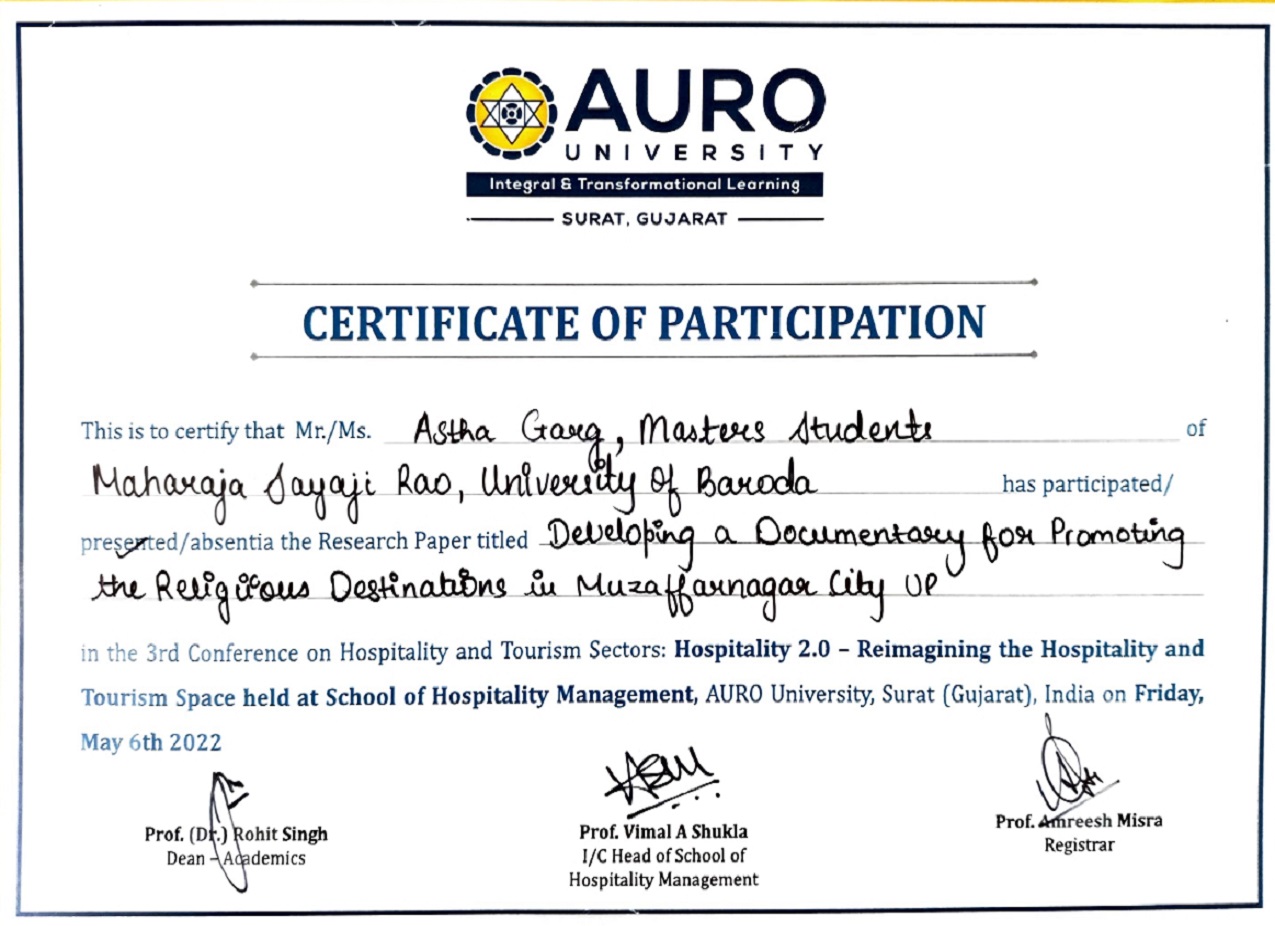 AURO
UNIVERSITY
Integral & Transformational Learning
SURAT, GUJARAT
CERTIFICATE OF PARTICIPATION
This is to certify that Mr./Ms. Astha Garg, Masters Students of
Maharaja Sayaji Rao, University of Baroda has participated/
presented/absentia the Research Paper titled Developing a Documentary for Promoting
the Religious Destinations in Muzaffarnagar City UP
in the 3rd Conference on Hospitality and Tourism Sectors: Hospitality 2.0 – Reimagining the Hospitality and
Tourism Space held at School of Hospitality Management, AURO University, Surat (Gujarat), India on Friday,
May 6th 2022
Prof. (Dr.) Rohit Singh
Dean – Academics
Prof. Vimal A Shukla
I/C Head of School of
Hospitality Management
Prof. Amreesh Misra
Registrar